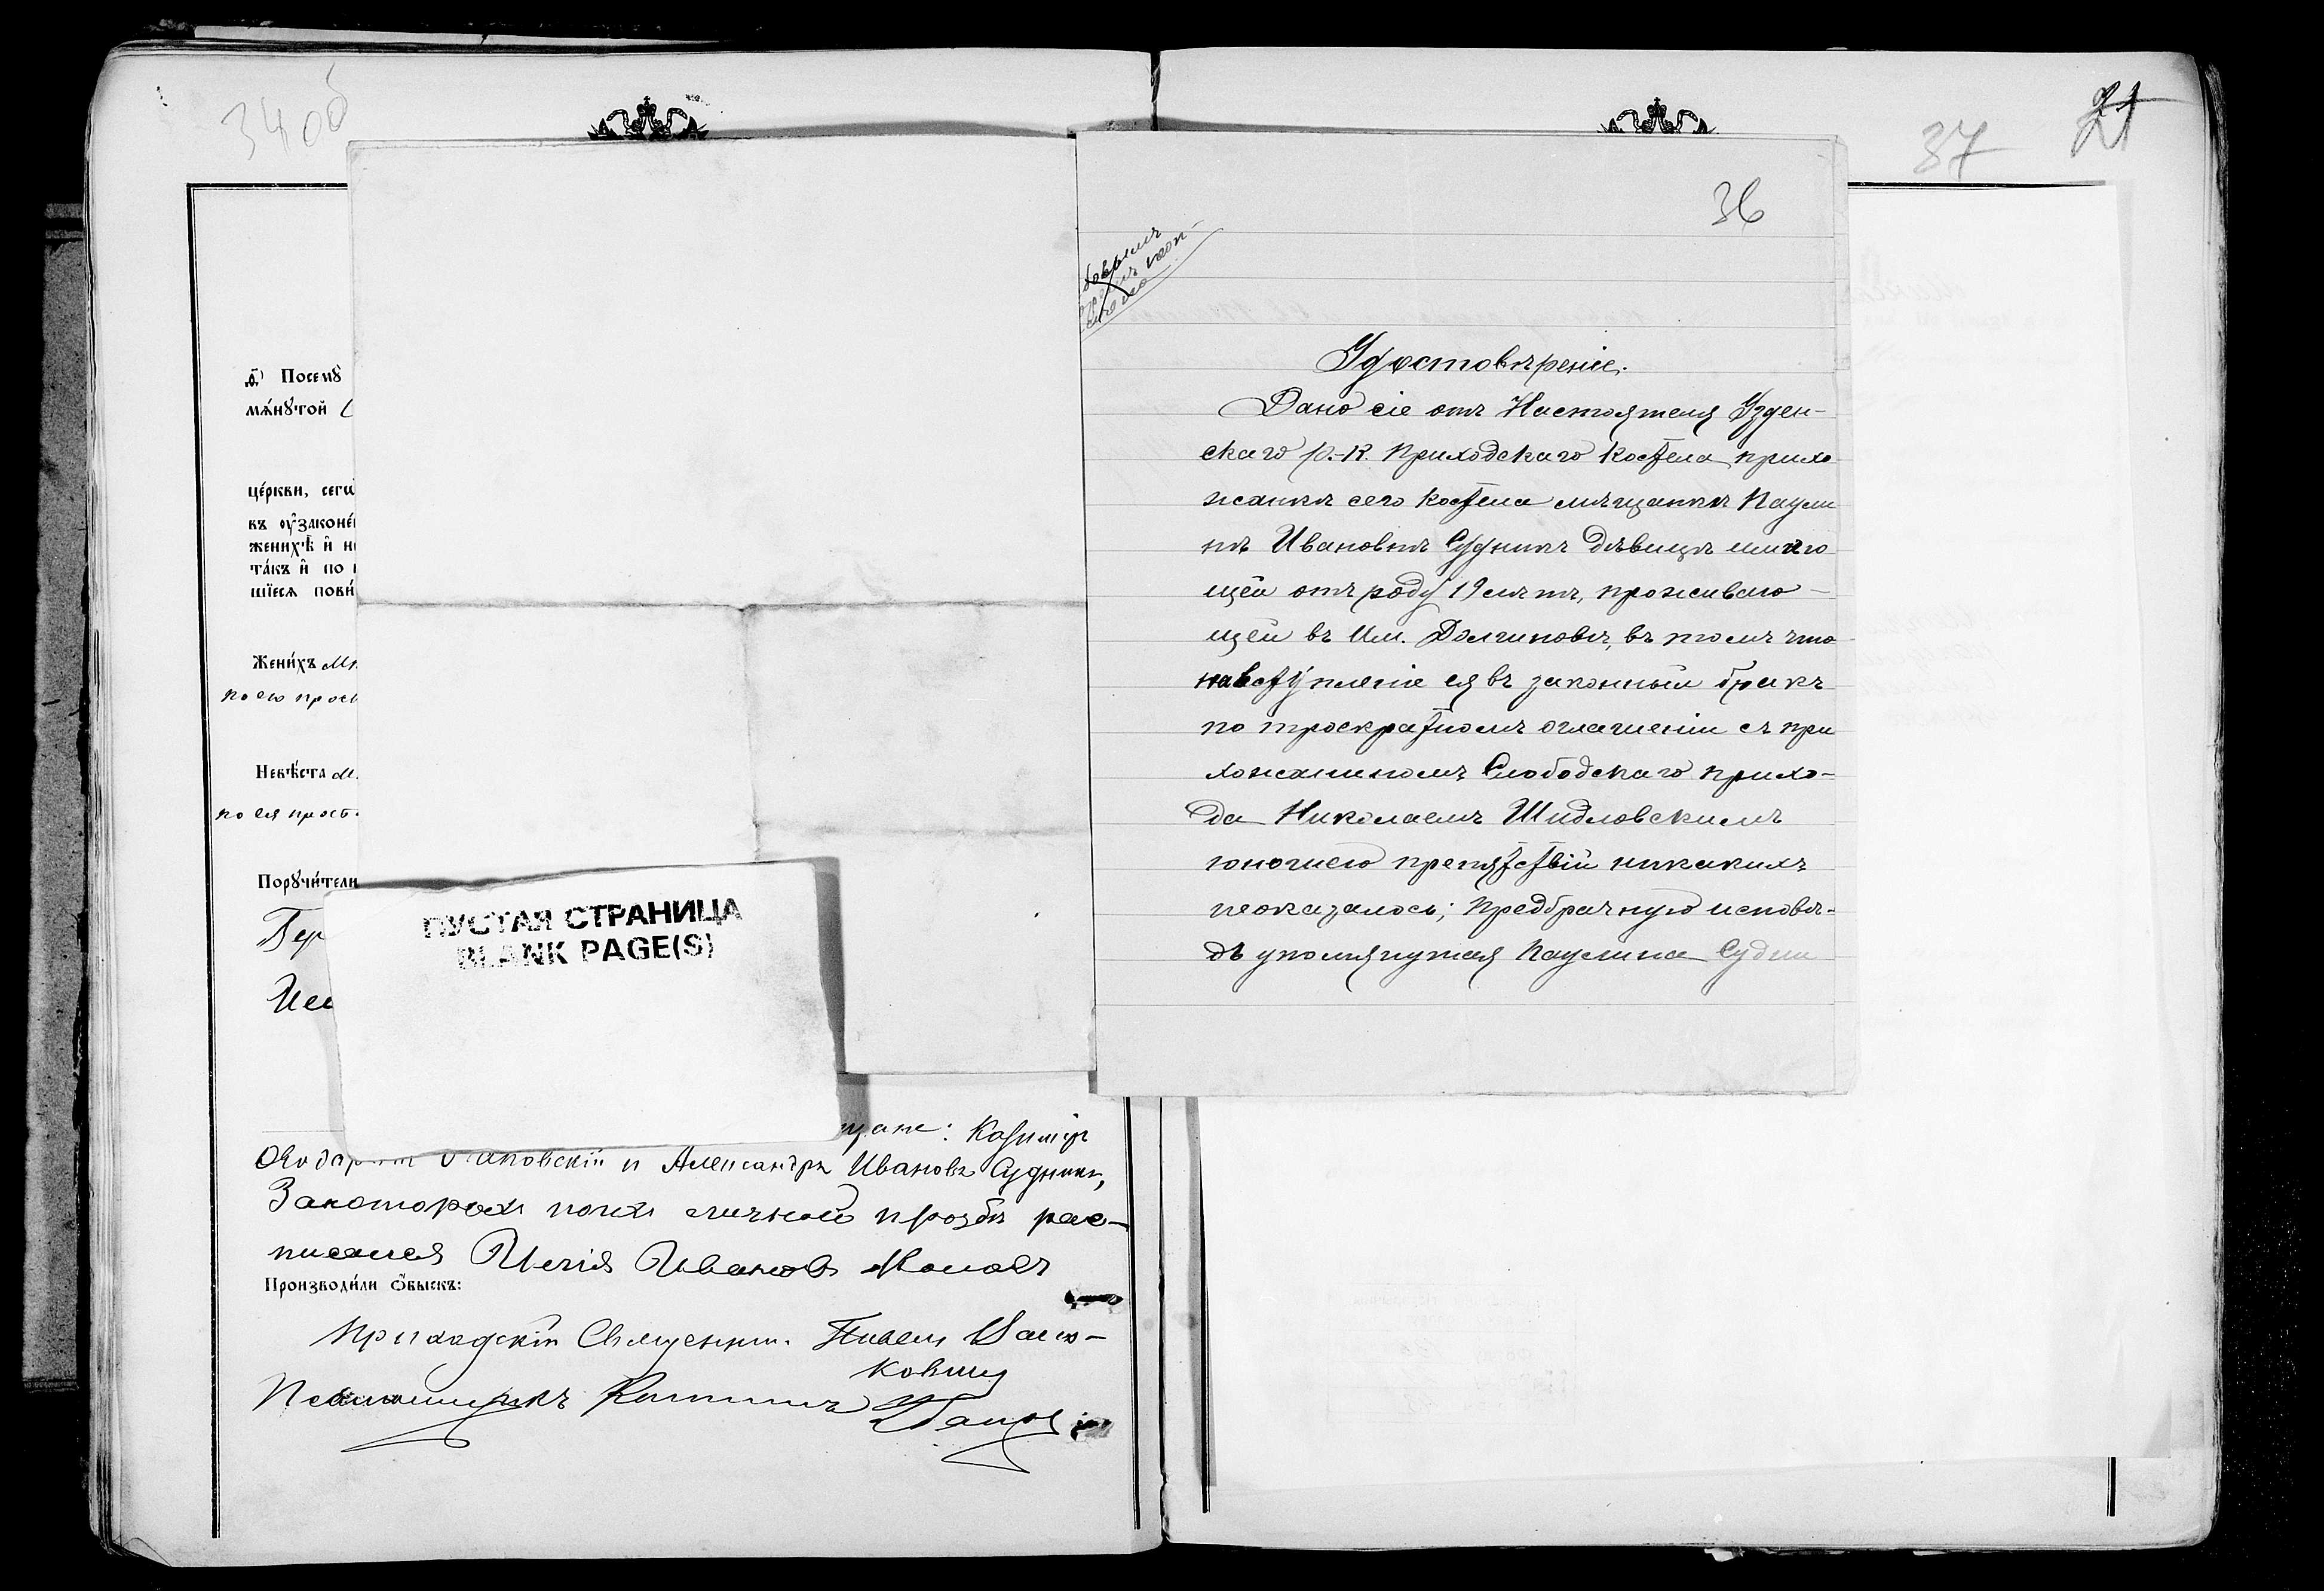 34об
҃. Посемꙋ
мѧ́нꙋтой
це́ркви, сегѡ̀
въ ᲂу҆законе́
женихѣ̀ и҆ н
та́къ и҆ по
шїесѧ пови́
Жени́хъ
по его прось
Невѣ́ста
по ея прось
Порꙋчи́тели
ПУСТАЯ СТРАНИЦА
BLANK PAGE(S)
щане: Казиміръ
и Александръ Ивановъ Судникъ,
За которыхъ по ихъ личной прозбѣ рас-
писался Ивановъ
Производи́ли ѻ҆́быскъ:
Приходскій Священник. Павелъ
ковичъ
Псаломщикъ
21
37
36
Удостовѣреніе.
Дано сіе отъ Настоятеля Узден-
скаго р.-К. Приходскаго Костела прихо
жанкѣ сего Костела мѣщанкѣ Паули
нѣ Ивановнѣ Судникъ дѣвицѣ имѣю
щей отъ роду 19 лѣтъ, проживаю-
щей въ Им. Долгиновѣ, въ томъ что
на вступленіе ея въ законный бракъ
по троекратномъ оглашеніи съ при
хожаниномъ Слободскаго прихо-
да Николаемъ Шидловскимъ
юношею препятствій никакихъ
неоказалось; Предбрачную исповѣ-
дь упомянутая Паулина Судни